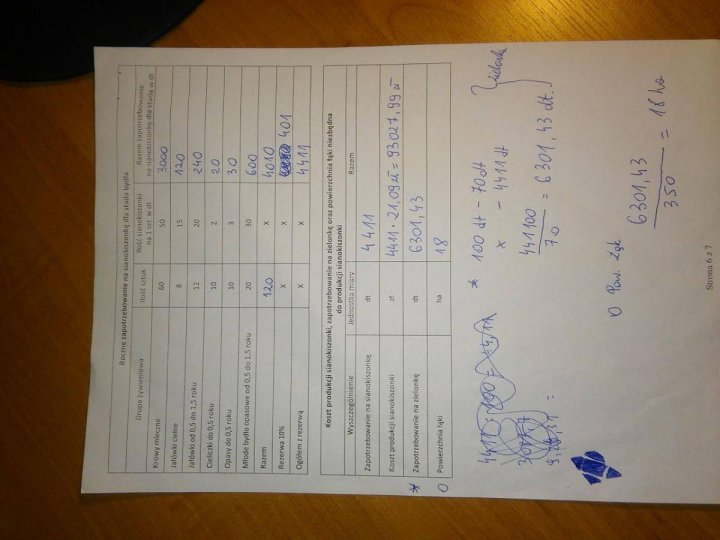 Roczne zapotrzebowanie na sianokiszonkę dla stada bydła
Grupa żywieniowa Ilość sztuk Ilość sianokiszonki na 1 szt. w dt Razem zapotrzebowanie na sianokiszonkę dla stada w dt
Krowy mleczne 60 50 3000
Jałówki cielne 8 15 120
Jałówki od 0,5 do 1,5 roku 12 20 240
Cieliczki do 0,5 roku 10 2 20
Opasy do 0,5 roku 10 3 30
Młode bydło opasowe od 0,5 do 1,5 roku 20 30 600
Razem 120 x 4010
Rezerwa 10% x x 401
Ogółem z rezerwą x x 4411
Koszt produkcji sianokiszonki, zapotrzebowanie na zielonkę oraz powierzchnia łąki niezbędna
do produkcji sianokiszonki
Wyszczególnienie Jednostka miary Razem
Zapotrzebowanie na sianokiszonkę dt 4411
Koszt produkcji sianokiszonki zł 4411 · 21,09 zł = 93027,99 zł
* Zapotrzebowanie na zielonkę dt 6301,43
O Powierzchnia łąki ha 18
* 100 dt - 70 dt
x - 4411 dt
441100
70
= 6301,43 dt.
} zielonka
O Pow. Łąk
6301,43
350
= 18 ha
Strona 6 z 7